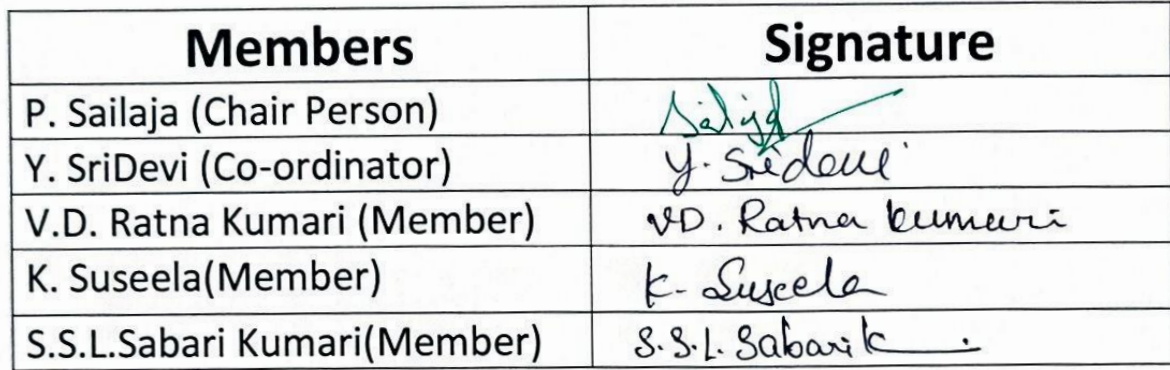 Members Signature
P. Sailaja (Chair Person) Sailaja
Y. SriDevi (Co-ordinator) Y. Sridevi
V.D. Ratna Kumari (Member) VD. Ratna kumari
K. Suseela(Member) K. Suseela
S.S.L.Sabari Kumari(Member) S.S.L. Sabari K